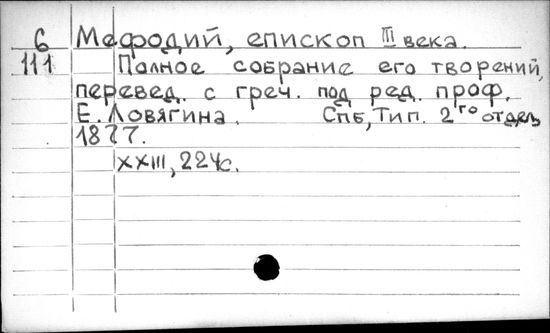 6 Мефодий, епископ III века.
111 Полное собрание его творений,
перевед. с греч. под ред. проф.
Е. Ловягина. СПб, Тип. 2го отдел.
1877.
XXIII, 224с.